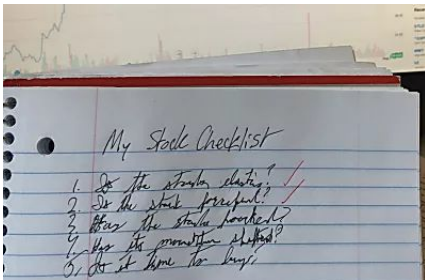 My Stock Checklist
1. Is the stock elastic?
2. Is the stock forceful?
3. Has the stock hooked?
4. Has its momentum shifted?
5. Is it time to buy?